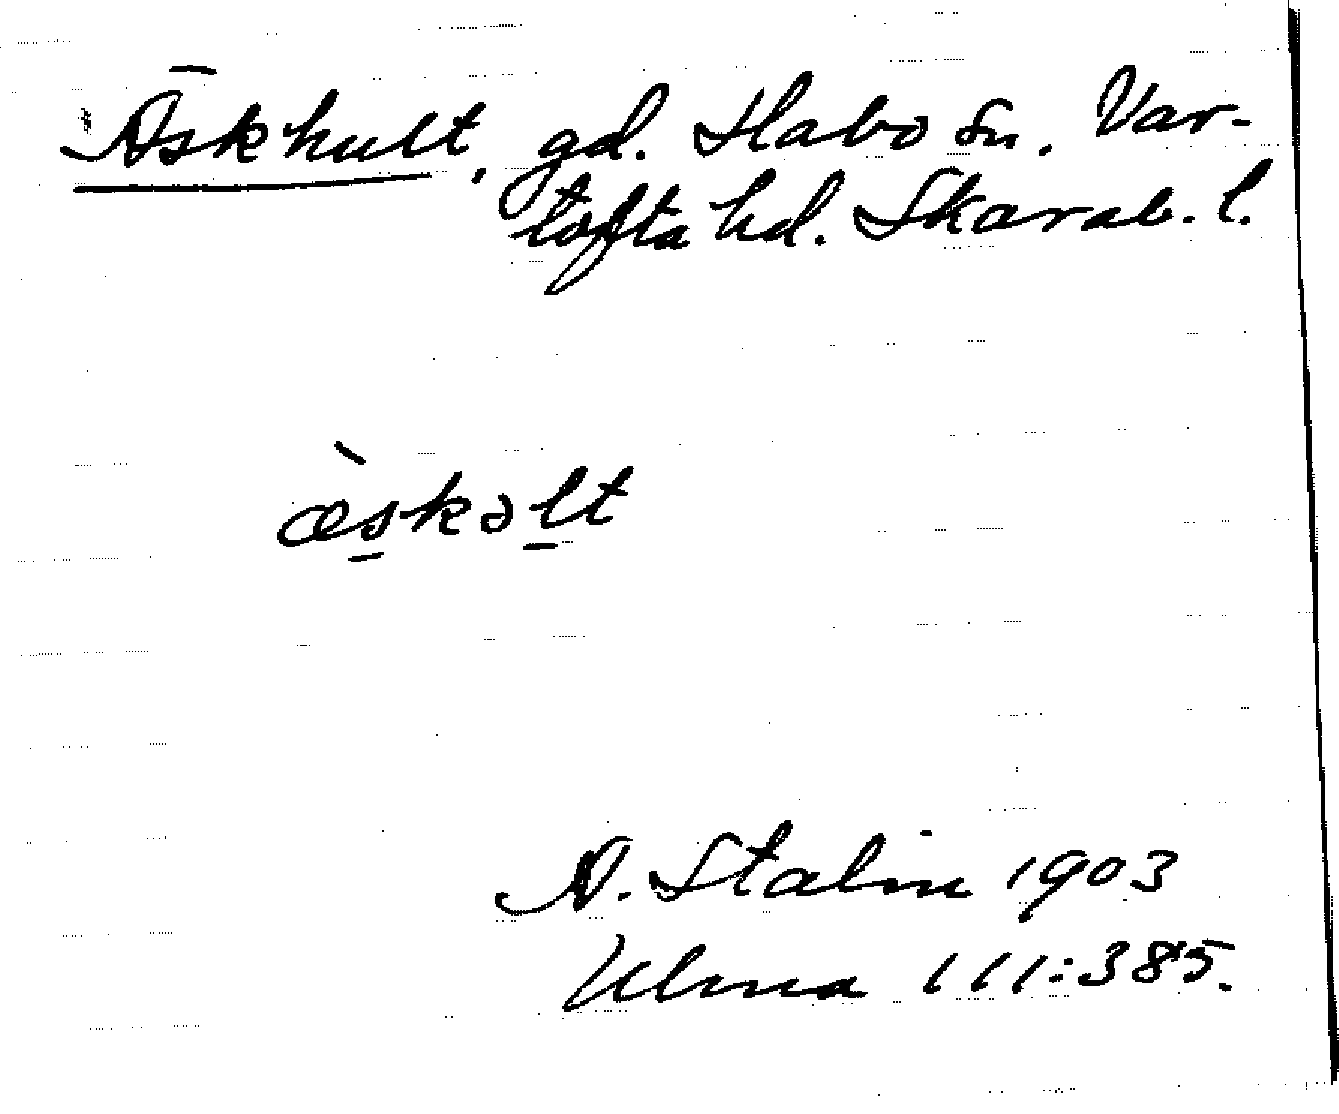 Äskhult, gd. Habo sn. Var-
tofta hd. Skarab. l.
æ̀s̠kəl̠t
A. Stalin 1903
Ulma 111:385.